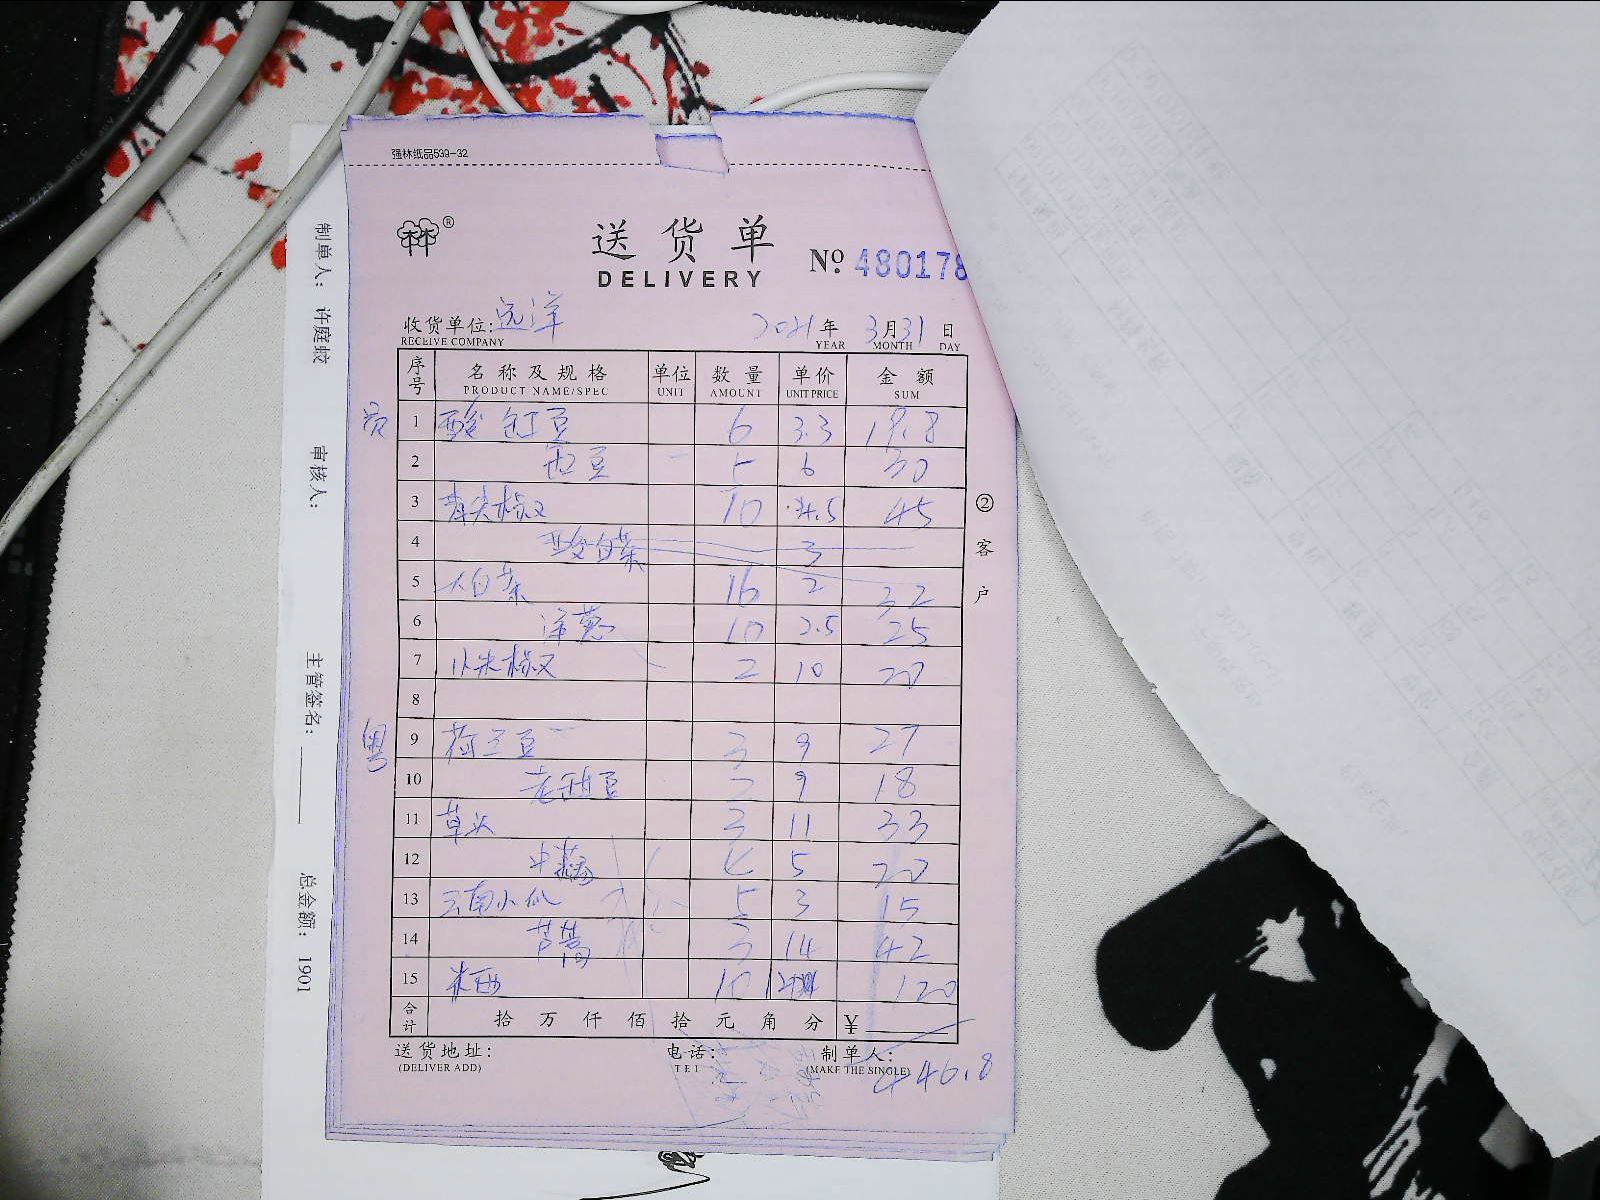 强林纸品539-32
林®
送货单
DELIVERY
№ 480178
收货单位: 远洋 2021年3月31日
RECEIVE COMPANY YEAR MONTH DAY
序号 名称及规格 单位 数量 单价 金额
PRODUCT NAME/SPEC UNIT AMOUNT UNIT PRICE SUM
1 酸缸豆 6 3.3 19.8
2 缸豆 5 6 30
3 青尖椒 10 4.5 45
4 酸白菜 3
5 大白菜 16 2 32
6 洋葱 10 2.5 25
7 小米椒 2 10 20
8
粤 9 荷兰豆 3 9 27
10 2 9 18
11 草头 3 11 33
12 4 5 20
13 云南小瓜 5 3 15
14 芦蒿 3 14 42
15 米西 10 12 120
合计 拾万仟佰拾元角分 ¥
446.8
送货地址: 电话: 制单人:
(DELIVER ADD) TEL (MAKE THE SINGLE)
②客户
制单人: 许庭蛟
审核人:
主管签名:
总金额: 1901